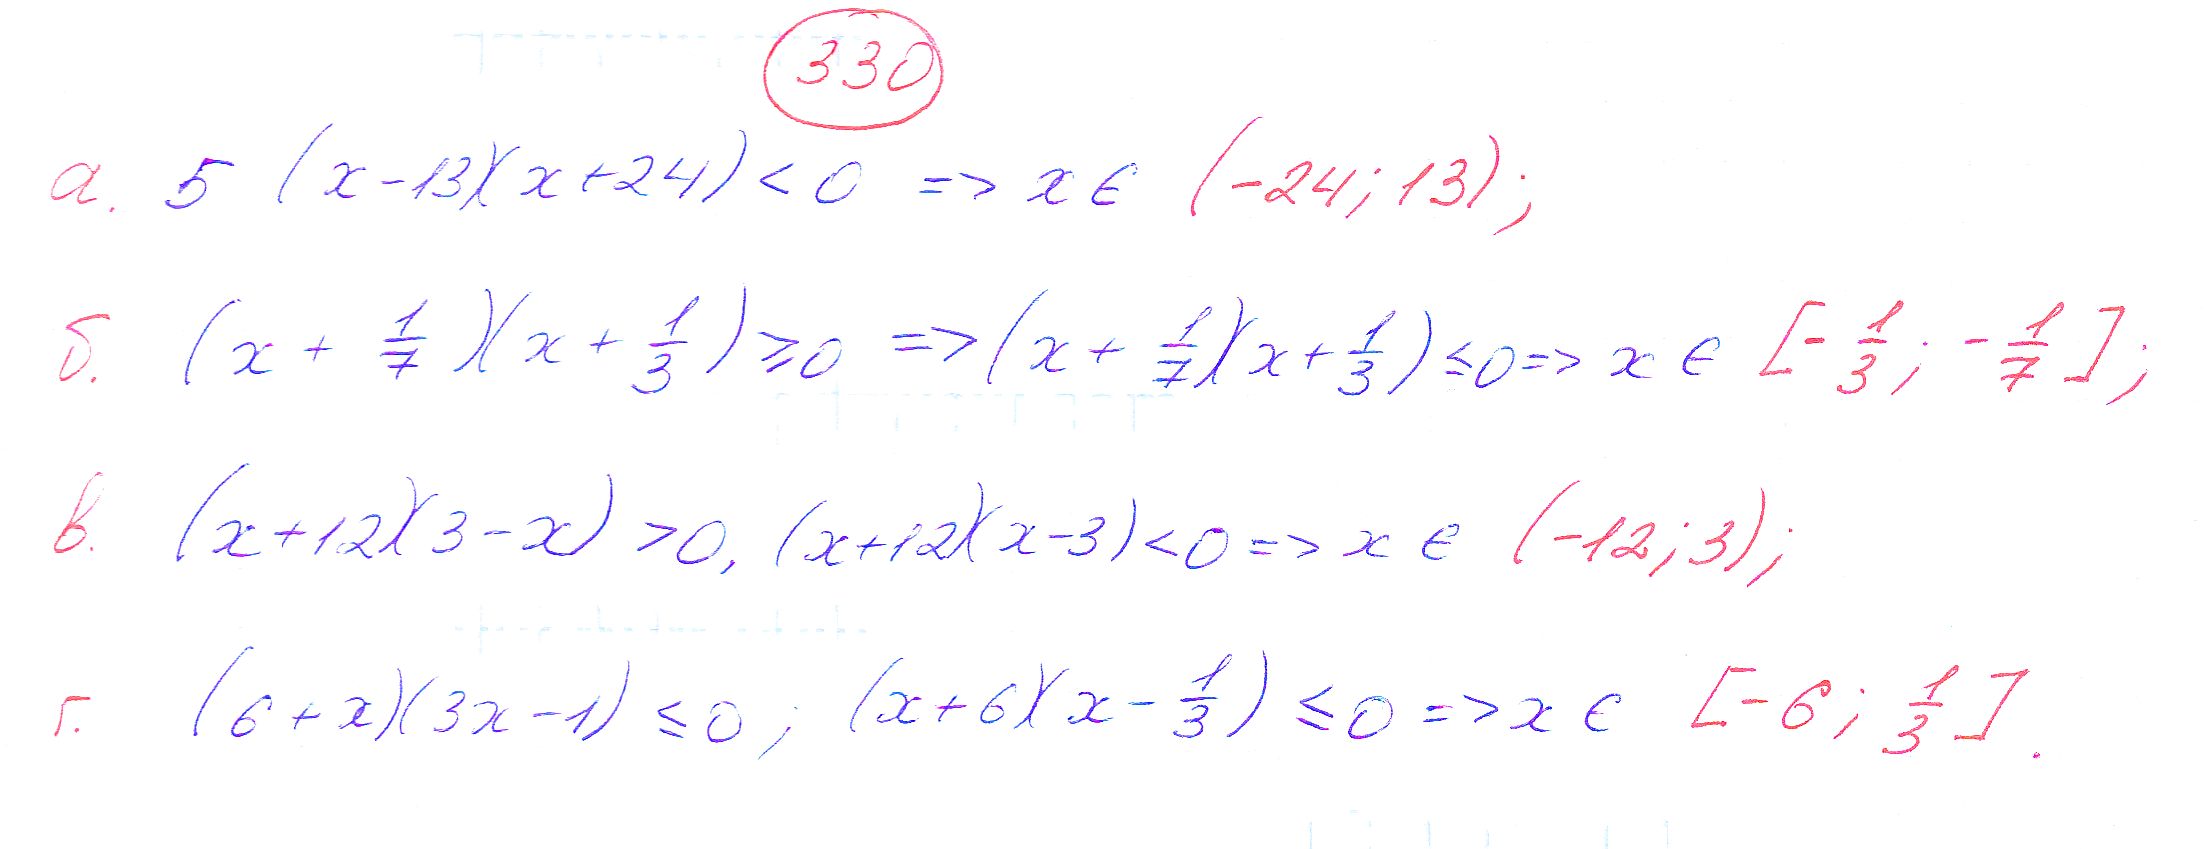 330
а. 5 (x-13)(x+24) < 0 => x ∈ (-24; 13);
б. (x + 1/7)(x + 1/3) ≥ 0 => (x + 1/7)(x + 1/3) ≤ 0 => x ∈ [-1/3; -1/7];
в. (x+12)(3-x) > 0, (x+12)(x-3) < 0 => x ∈ (-12; 3);
г. (6+x)(3x-1) ≤ 0; (x+6)(x - 1/3) ≤ 0 => x ∈ [-6; 1/3].